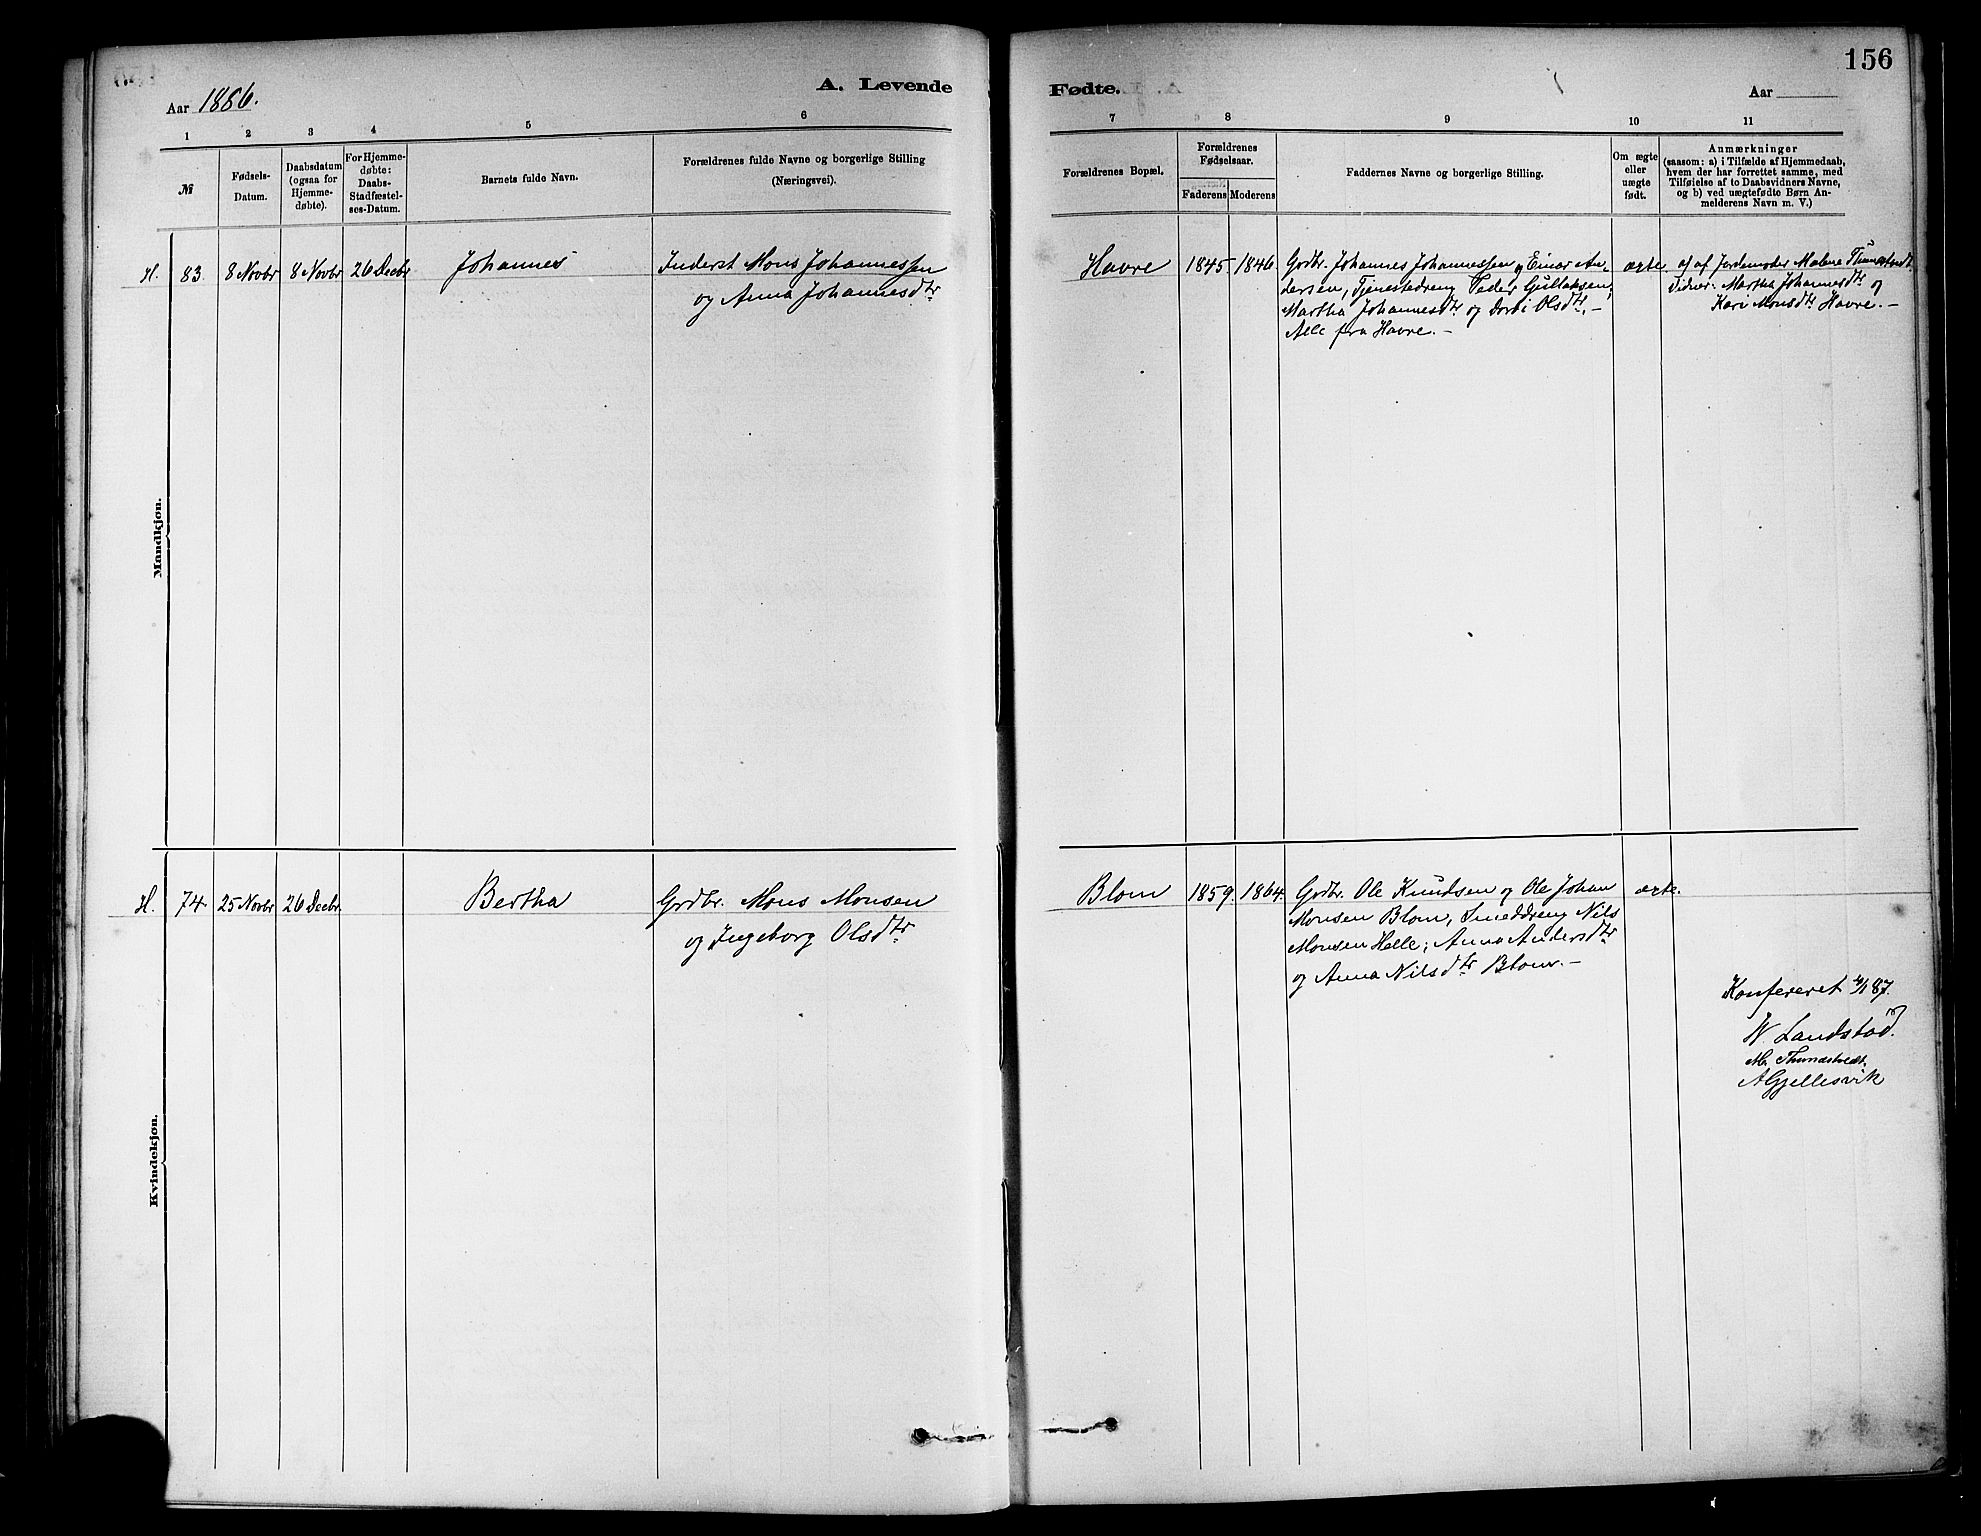 156
Aar 1886.
A. Levende
Fødte.
Aar
1 2 3 4 5 6
7 8 9 10 11
№
Fødsels-
Datum.
Daabsdatum
(ogsaa for
Hjemme-
døbte).
For Hjemme-
døbte:
Daabs-
Stadfæstel-
ses-Datum.
Barnets fulde Navn.
Forældrenes fulde Navne og borgerlige Stilling
(Næringsvei).
Forældrenes Bopæl.
Forældrenes
Fødselsaar.
Faderens Moderens
Faddernes Navne og borgerlige Stilling.
Om ægte
eller
uægte
født.
Anmærkninger
(saasom: a) i Tilfælde af Hjemmedaab,
hvem der har forrettet samme, med
Tilføielse af to Daabsvidners Navne,
og b) ved uægtefødte Børn An-
melderens Navn m. V.)
Mandkjøn.
H. 83. 8 Novbr 8 Novbr 26 Decbr Johannes
Inderst Mons Johannessen
og Anna Johannesdtr
Havre 1845 1846
Grdbr. Johannes Johannessen og Einar An-
dersen, Tjenestedreng Peder Gullaksen,
Martha Johannesdtr og Dorthi Olsdtr. –
Alle fra Havre. –
ægte
a) af Jordemoder Malene Thunestvedt
Vidner: Martha Johannesdtr og
Kari Monsdtr Havre. –
Kvindekjøn.
H. 74 25 Novbr 26 Decbr. Bertha
Grdbr. Mons Monsen
og Ingeborg Olsdtr
Blom 1859. 1864.
Grdbr. Ole Knudsen og Ole Johan
Monsen Blom, Smeddreng Nils
Monsen Helle; Anna Andersdtr
og Anna Nilsdtr Blom. –
ægte.
Konfereret 4/1 87.
W. Landstad.
M. Thunestvedt.
A Gjellesvik